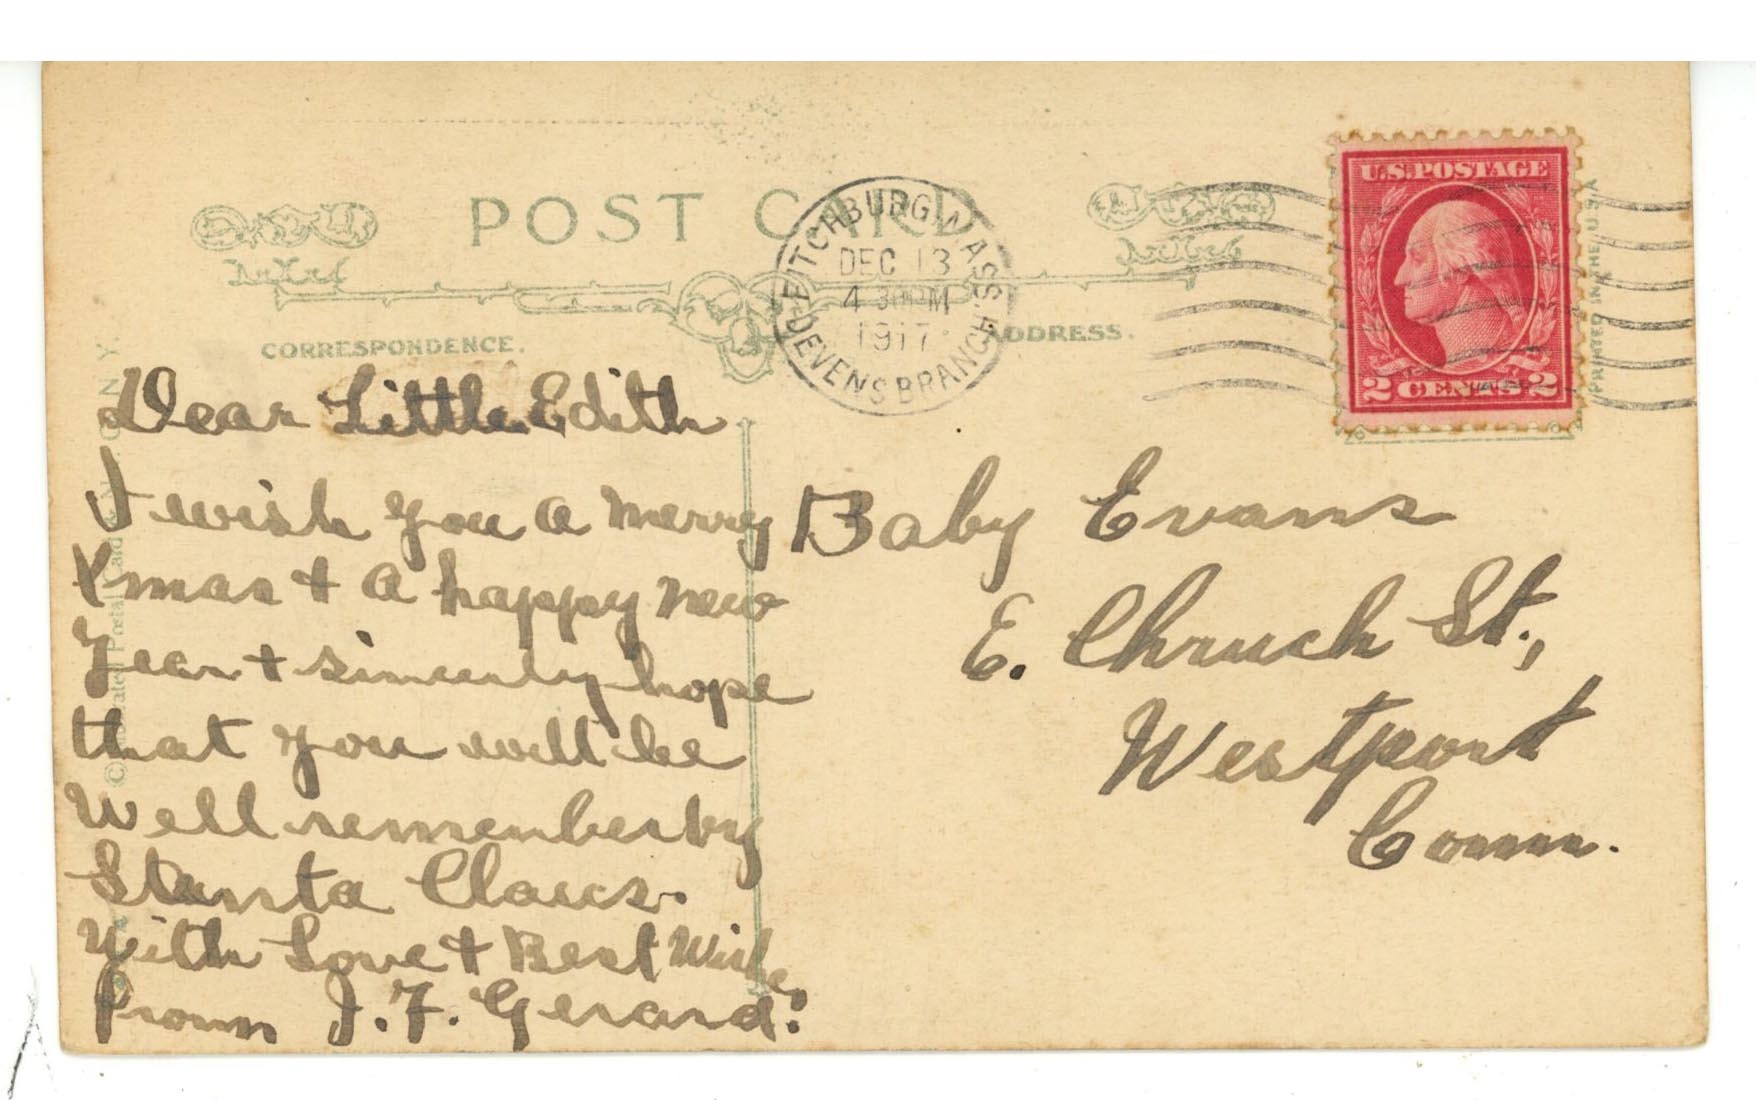 POST CARD
FITCHBURG, MASS.
DEC 13
4 30 PM
1917
DEVENS BRANCH
U.S. POSTAGE
2 CENTS 2
PRINTED IN THE U.S.A
CORRESPONDENCE.
ADDRESS.
Dear Little Edith
I wish you a merry
Xmas + a happy new
Year + sincerely hope
that you will be
Well remember by
Stanta Claus.
With Love + Best Wishes
From J. F. Gerard.
Baby Evans
E. Chruch St.,
Westport
Conn.